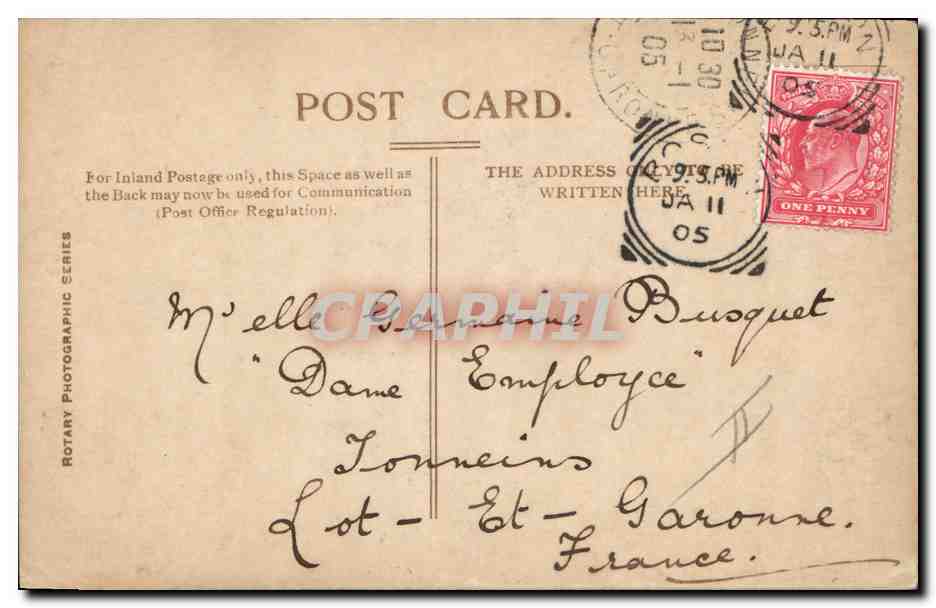 POST CARD.
For Inland Postage only, this Space as well as
the Back may now be used for Communication
(Post Office Regulation).
THE ADDRESS ONLY TO BE
WRITTEN HERE.
ROTARY PHOTOGRAPHIC SERIES
10 30
13 - 1
05
9.5.PM
JA 11
05
9.5.PM
JA 11
05
ONE PENNY
CPAPHIL
M'elle Germaine Busquet
"Dame Employée"
Tonneins
Lot - Et - Garonne.
France.
II